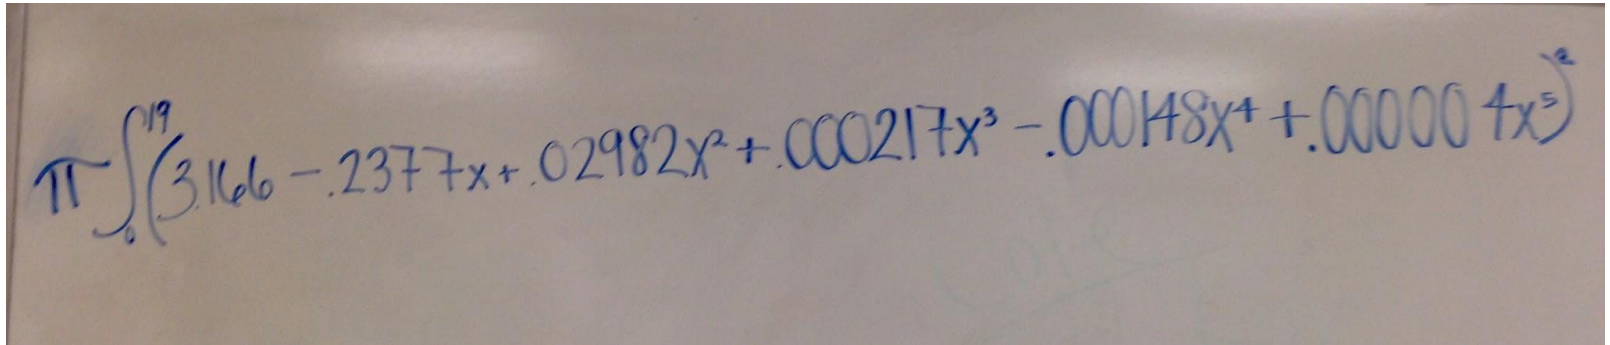 π∫₀¹⁹(3.166 - .2377x + .02982x² + .000217x³ - .000148x⁴ + .000004x⁵)²